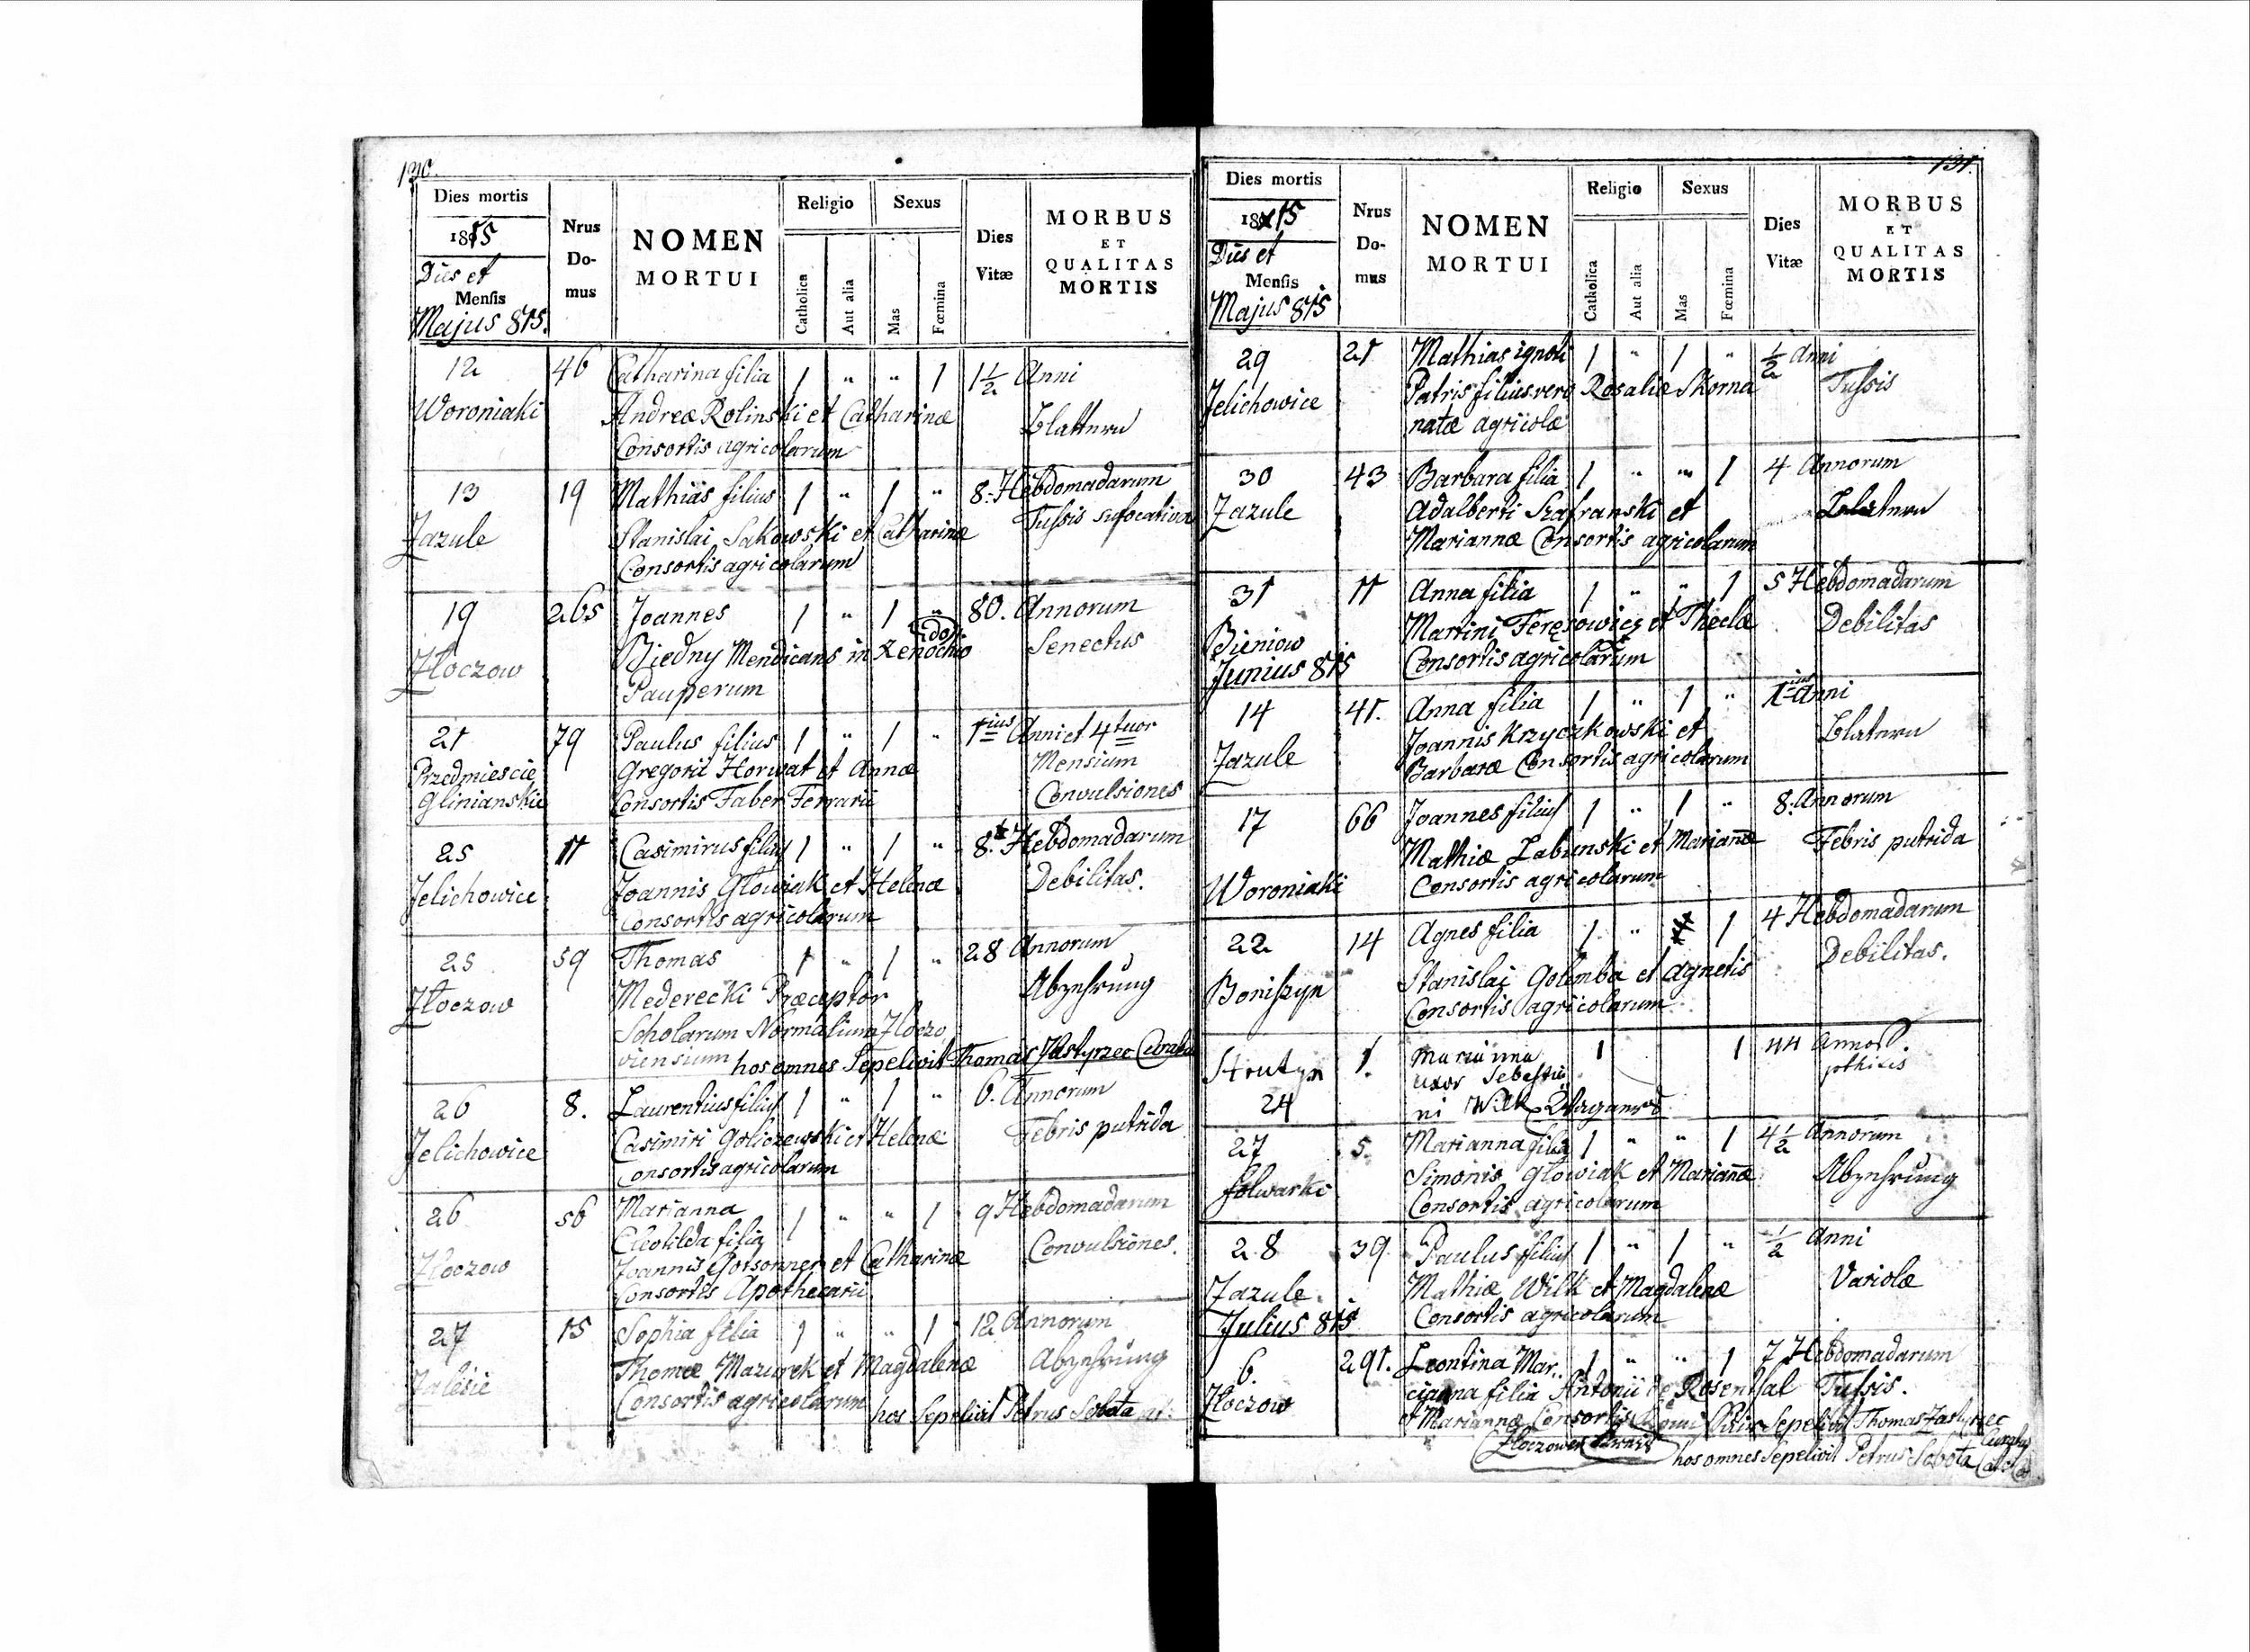 130.
Dies mortis
1815
Dies et
Mensis
Majus 815.
Nrus
Do-
mus
NOMEN
MORTUI
Religio
Catholica
Aut alia
Sexus
Mas
Fœmina
Dies
Vitæ
MORBUS
ET
QUALITAS
MORTIS
12 46 Catharina filia 1 " " 1 1½ Anni
Woroniaki Andreæ Rolinski et Catharinæ Blattern
Consortis agricolarum
13 19 Mathias filius 1 " 1 " 8. Hebdomadarum
Zazule Stanislai Sakowski et Catharinæ Tussis sufocativa
Consortis agricolarum
19 265 Joannes 1 " 1 " 80. Annorum
Złoczow Biedny Mendicans in Xenodochio Senectus
Pauperum
21 79 Paulus filius 1 " 1 " 1ius Anni et 4tuor
Przedmiescie Gregorii Horwat et Annæ Mensium
Glinianskie Consortis Faber Ferrarii Convulsiones
25 11 Casimirus filius 1 " 1 " 8. Hebdomadarum
Jelichowice Joannis Głowiak et Helenæ Debilitas.
Consortis agricolarum
25 59 Thomas 1 " 1 " 28 Annorum
Złoczow Mederecki Præceptor Abzehrung
Scholarum Normalium Złoczo
viensium hos omnes Sepelivit Thomas Zastyrzec Curatus
26 8. Laurentius filius 1 " 1 " 6. Annorum
Jelichowice Casimiri Goliczewski et Helenæ Febris putrida
Consortis agricolarum
26 56 Marianna 1 " " 1 9 Hebdomadarum
Cleotilda filia
Złoczow Joannis et Catharinæ Convulsiones.
Consortis Apothecarii
27 15 Sophia filia 1 " " 1 12 Annorum
Zalesie Thomæ Mazurek et Magdalenæ Abzehrung
Consortis agricolarum hos Sepelivit Petrus Sobota
131.
Dies mortis
1815
Dies et
Mensis
Majus 815
Nrus
Do-
mus
NOMEN
MORTUI
Religio
Catholica
Aut alia
Sexus
Mas
Fœmina
Dies
Vitæ
MORBUS
ET
QUALITAS
MORTIS
29 21 Mathias ignoti 1 " 1 " ½ Anni
Jelichowice Patris filius vero Rosaliæ Skorna Tussis
natæ agricolæ
30 43 Barbara filia 1 " " 1 4 Annorum
Zazule Adalberti Szafranski et Blatern
Mariannæ Consortis agricolarum
31 11 Anna filia 1 " " 1 5 Hebdomadarum
Bieniow Martini Feręsowicz et Theclæ Debilitas
Junius 815 Consortis agricolarum
14 41. Anna filia 1 " 1 " 1ius Anni
Zazule Joannis Krzyczkowski et Blatern
Barbaræ Consortis agricolarum
17 66 Joannes filius 1 " 1 " 8. Annorum
Woroniaki Mathiæ Labunski et Mariannæ Febris putrida
Consortis agricolarum
22 14 Agnes filia 1 " 1 4 Hebdomadarum
Boniszyn Stanislai Golemba et Agnetis Debilitas.
Consortis agricolarum
Strutyn 1. Marianna 1 1 44 Annor
uxor Sebastia pthisis
24 ni Wilk
27 5. Marianna filia 1 " " 1 4½ Annorum
folwarki Simonis Głowiak et Mariannæ Abzehrung
Consortis agricolarum
28 39 Paulus filius 1 " 1 " ½ Anni
Zazule Mathiæ Wilk et Magdalenæ Variolæ
Julius 815 Consortis agricolarum
6. 291. Leontina Mar.. 1 " " 1 7 Hebdomadarum
Złoczow cianna filia Antonii de Rosenthal Tussis.
et Mariannæ Consortis Sepelivit Thomas Zastyrzec
Curatus
hos omnes Sepelivit Petrus Sobota